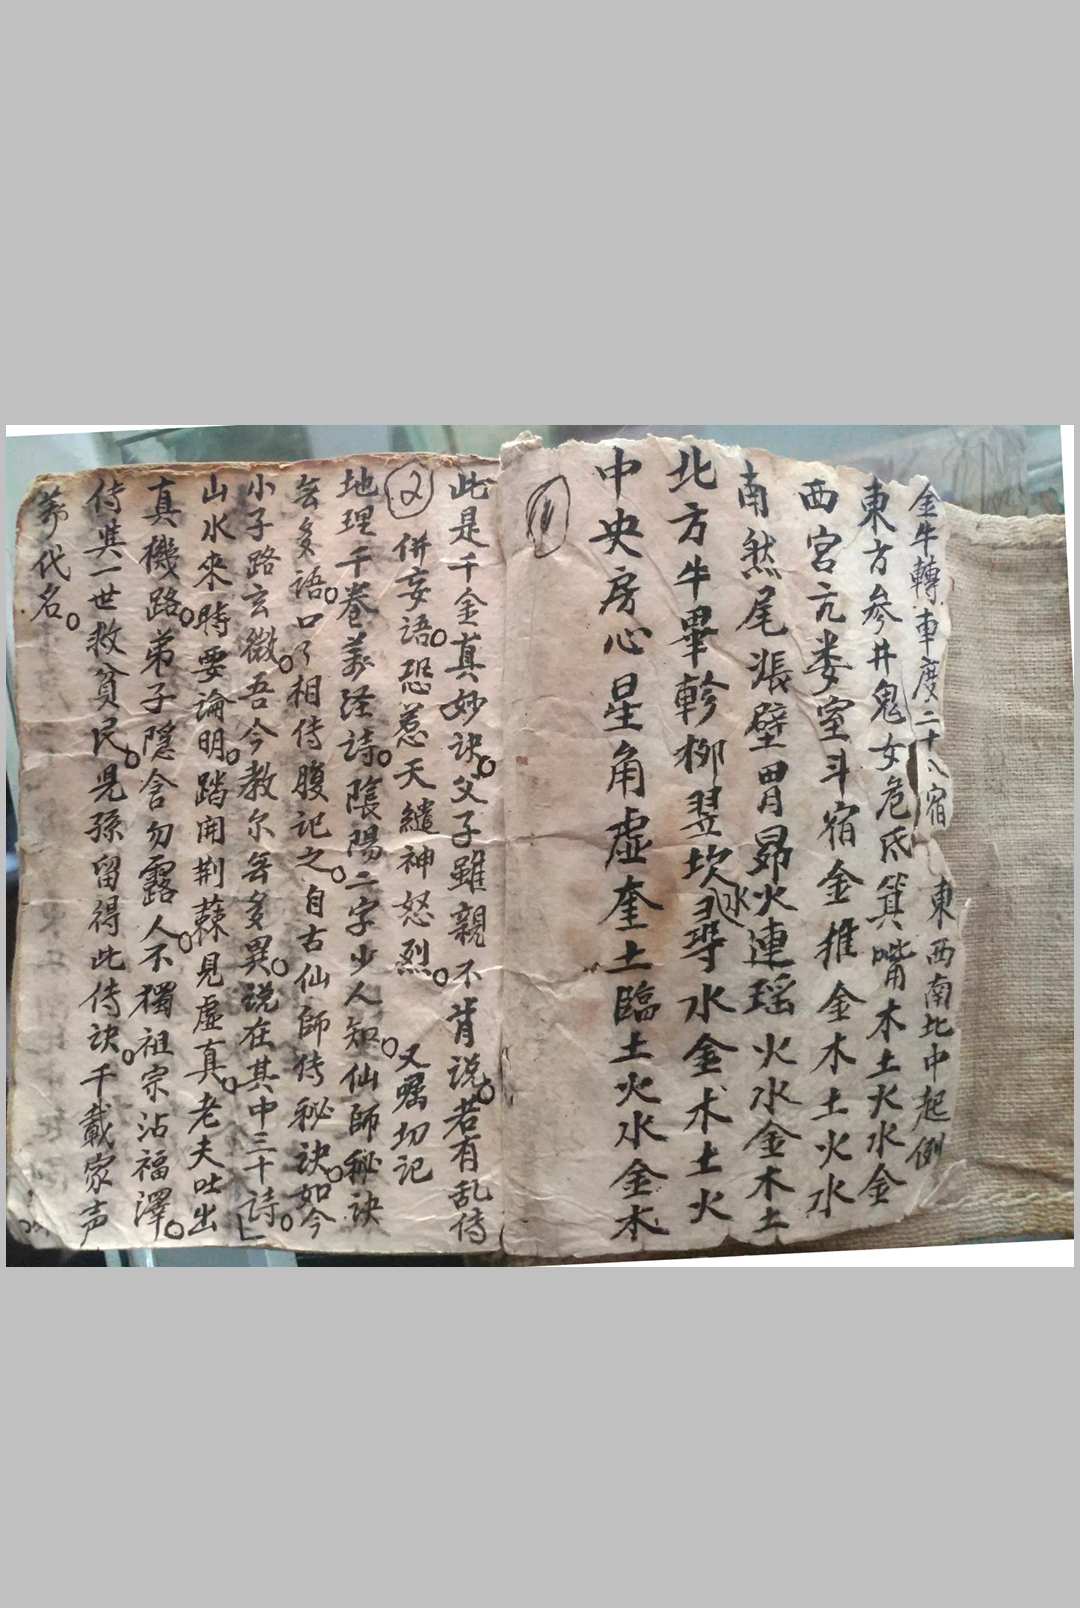 金牛轉車度二十八宿 東西南北中起例
東方參井鬼女危氐箕嘴木土火水金
西宮亢娄室斗宿金推金木土火水
南煞尾漲壁胃昴火連瑶火水金木土
北方牛畢軫柳翌坎水尋水金木土火
中央房心星角虚奎土臨土火水金木
1
此是千金真妙诀。父子雖親不肯说。若有乱侍
2
併妄语。恐惹天繾神怒烈。又嘱切记
地理千卷萬经诗。陰陽二字少人知。仙師秘诀
无多语。口了相侍腹记之。自古仙師传秘诀。如今
小子路玄微。吾今教尔无多異。说在其中三十诗。
山水來時要論明。踏開荆蕀見虚真。老夫吐出
真機路。弟子隱含勿露人。不獨祖宗沾福澤。
侍其一世救貧民。児孫留得此侍诀。千載家声
萬代名。